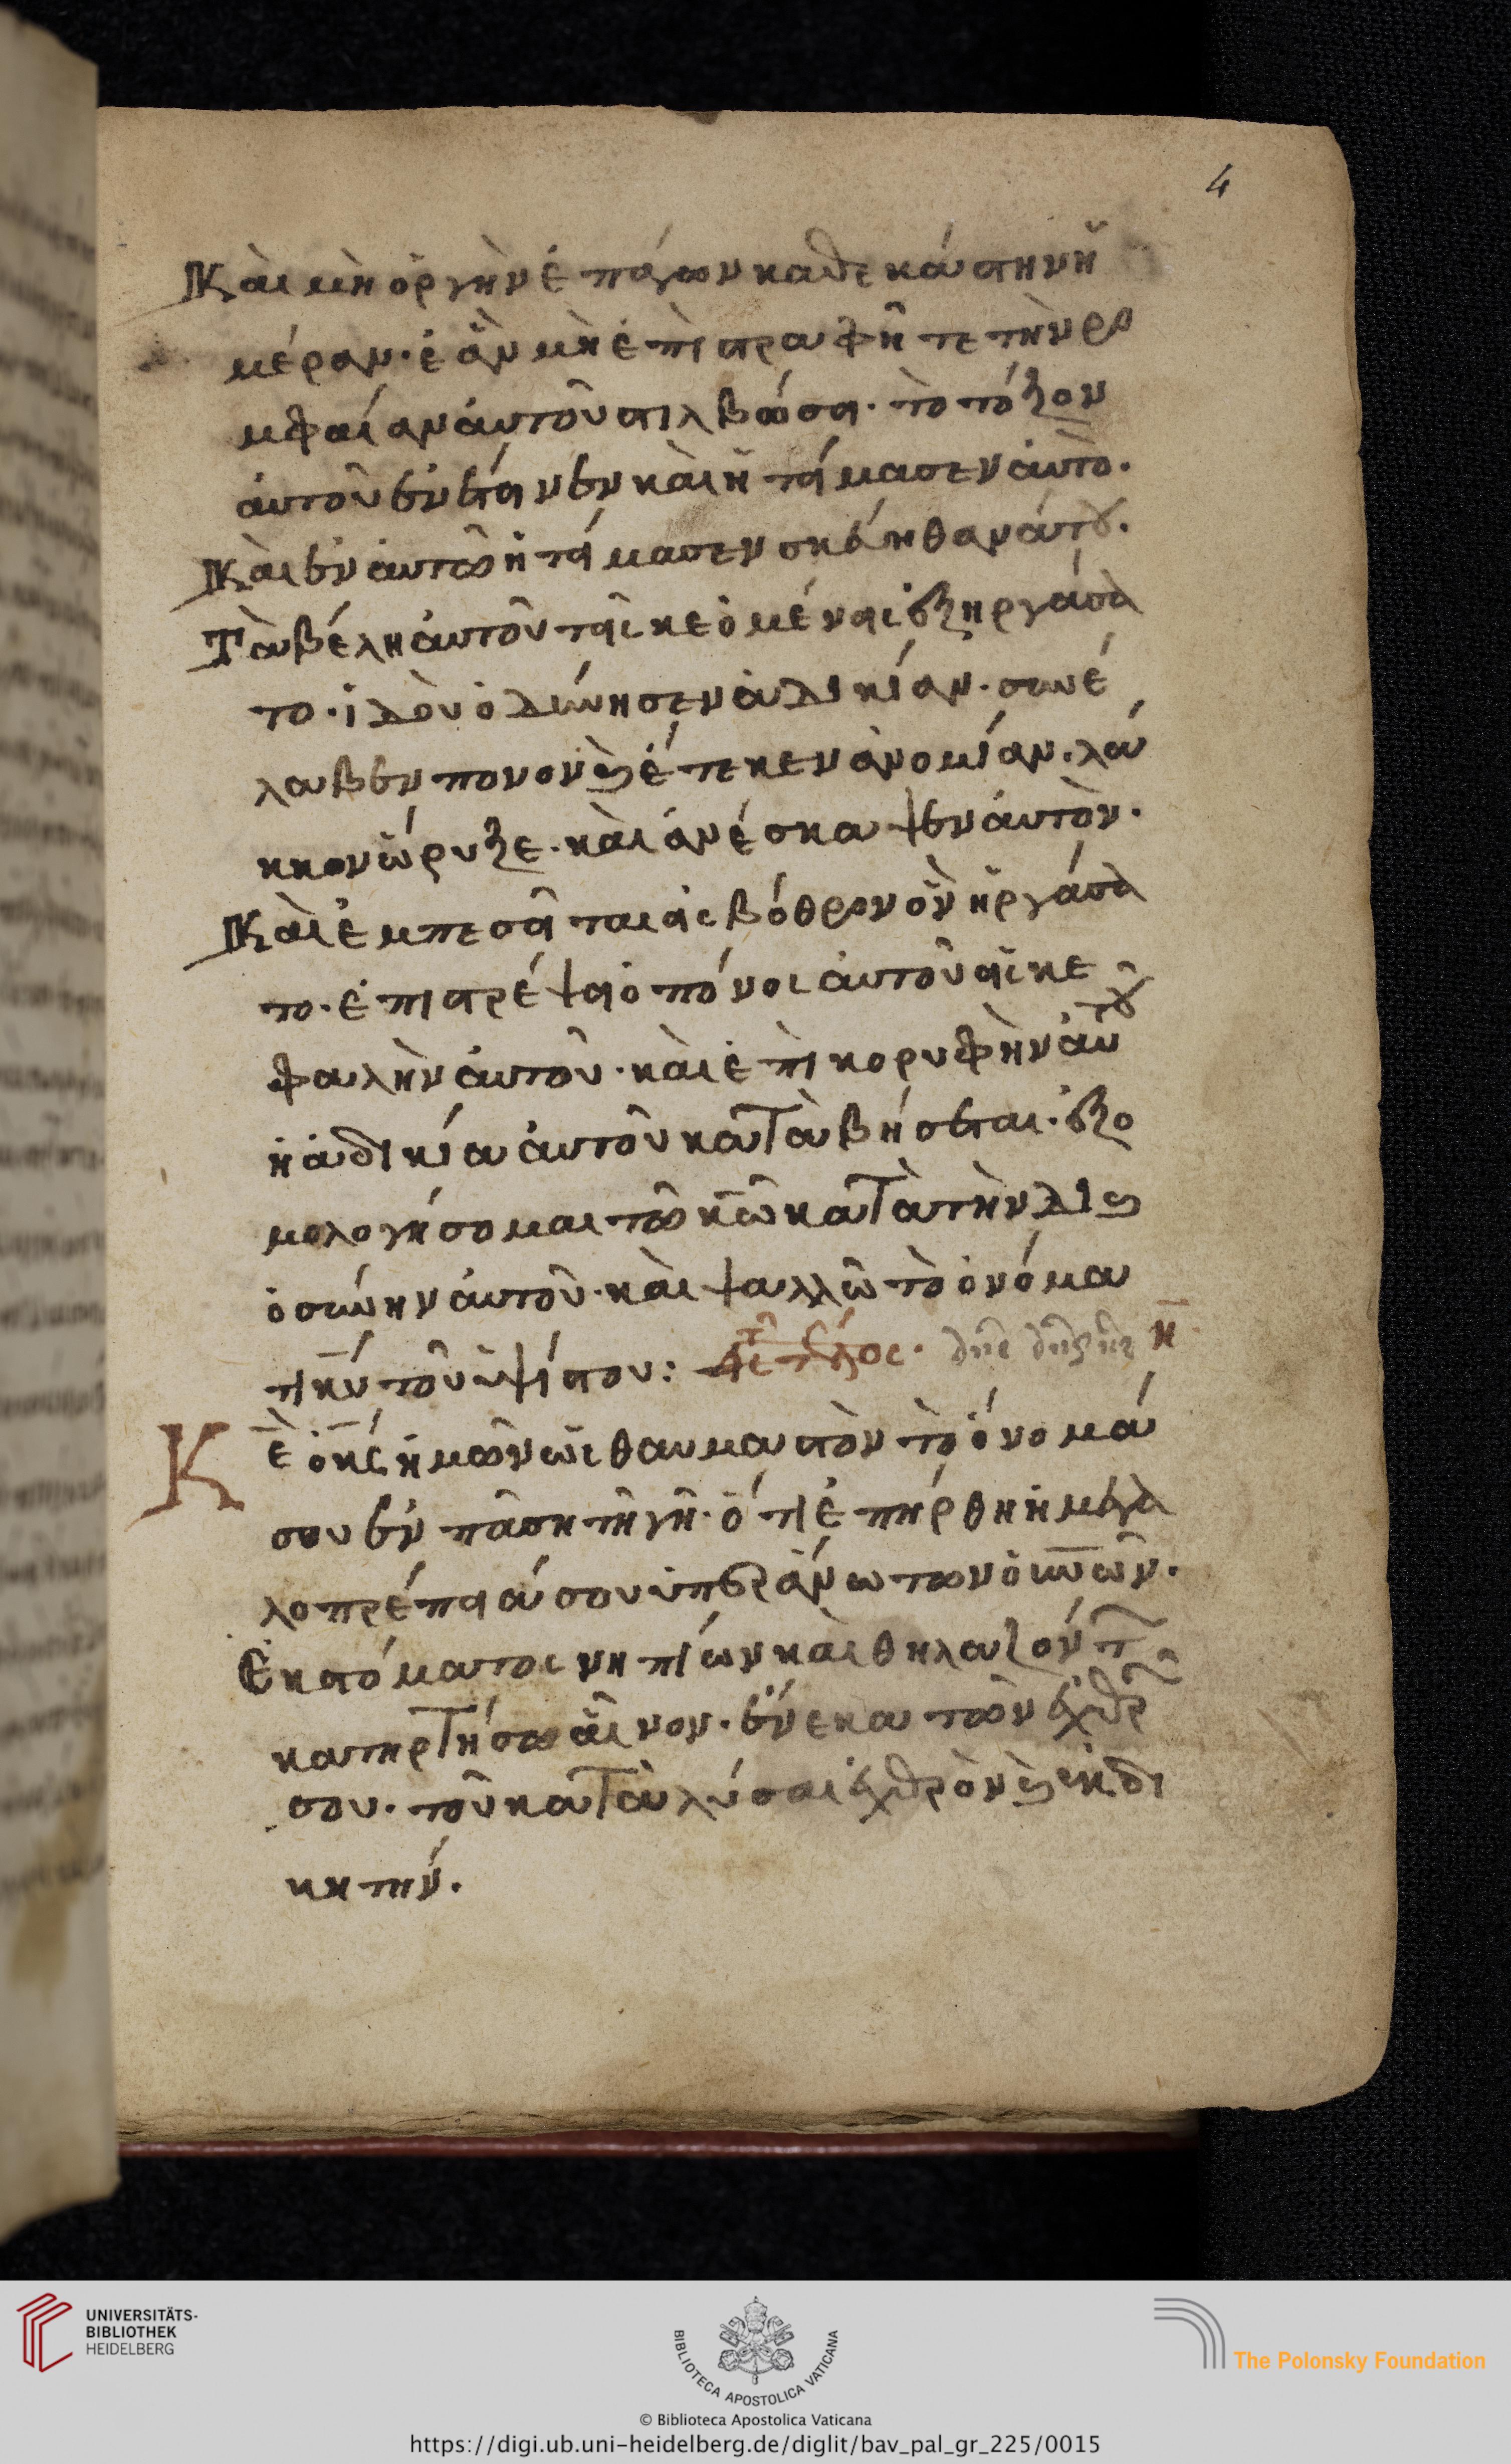 4
Καὶ μὴ ὀργὴν ἐπάγων καθεκάστην ἡ
μέραν· ἐὰν μὴ ἐπιστραφῆτε τὴν ρο
μφαίαν ἀυτοῦ στιλβώσει· τὸ τόξον
ἀυτοῦ ἐνέτεινεν καὶ ἡτοίμασεν ἀυτό·
Καὶ ἐν ἀυτῶ ἡτοίμασεν σκέυη θανάτου·
Τὰ βέλη ἀυτοῦ τοῖς κεομένοις ἐξηργάσα
το· ἰδοὺ ὀδύνησεν ἀδικίαν· συνέ
λαβεν πονον ϗ ἔτεκεν ἀνομίαν· λά
κκον ὤρυξε· καὶ ἀνέσκαψεν ἀυτὸν·
Καὶ ἐμπεσεῖται εἰς βόθρον ὃν ἠργάσα
το· ἐπιστρέψει ὁ πόνος ἀυτοῦ εἰς κε
φαλὴν ἀυτοῦ· καὶ ἐπὶ κορυφὴν ἀυτοῦ
ἡ ἀδικία ἀυτοῦ καταβήσεται· ἐξο
μολογήσομαι τῶ κ̅ω̅ κατὰ τὴν δικαι
οσύνην ἀυτοῦ· καὶ ψαλλῶ τὸ ὀνόμα
τι κ̅υ̅ τοῦ ὑψίστου: εἰς τὸ τέλος· η̅
Κε̅ ὁ κ̅ς̅ ἡμῶν ὡς θαυμαστὸν τὸ ὄνομά
σου ἐν πάση τῆ γῆ· ὅτι ἐπήρθη ἡ μεγα
λοπρέπειά σου ὑπεράνω τῶν ὀυ̅νω̅ν·
Εκ στόματος νηπίων καὶ θηλαζόντ
κατηρτήσω αἶνον· ἕνεκα τῶν ἐχθρ
σου· τοῦ καταλύσαι ἐχθρὸν ϗ ἐκδι
κητήν·
UNIVERSITÄTS-
BIBLIOTHEK
HEIDELBERG
BIBLIOTECA APOSTOLICA VATICANA
The Polonsky Foundation
© Biblioteca Apostolica Vaticana
https://digi.ub.uni-heidelberg.de/diglit/bav_pal_gr_225/0015